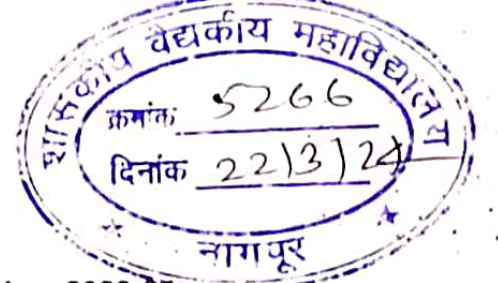 शासकीय वैद्यकीय महाविद्यालय
क्रमांक 5266
दिनांक 22/3/24
नागपूर